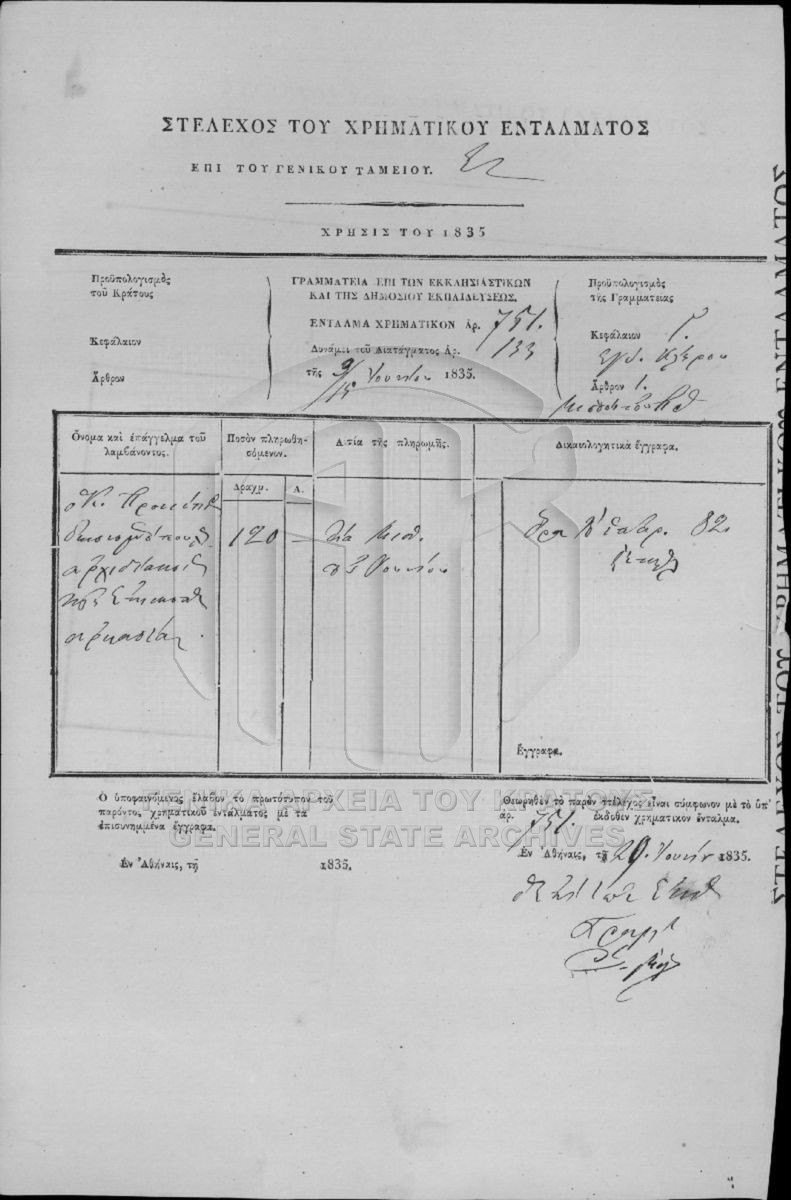 ΣΤΕΛΕΧΟΣ ΤΟΥ ΧΡΗΜΑΤΙΚΟΥ ΕΝΤΑΛΜΑΤΟΣ
ΕΠΙ ΤΟΥ ΓΕΝΙΚΟΥ ΤΑΜΕΙΟΥ.
ΧΡΗΣΙΣ ΤΟΥ 1835
Προϋπολογισμὸς
τοῦ Κράτους
Κεφάλαιον
Ἄρθρον
ΓΡΑΜΜΑΤΕΙΑ ΕΠΙ ΤΩΝ ΕΚΚΛΗΣΙΑΣΤΙΚΩΝ
ΚΑΙ ΤΗΣ ΔΗΜΟΣΙΟΥ ΕΚΠΑΙΔΕΥΣΕΩΣ.
ΕΝΤΑΛΜΑ ΧΡΗΜΑΤΙΚΟΝ Ἀρ. 751.
Δυνάμει τοῦ Διατάγματος Ἀρ. 133
τῆς 9/15 Ἰουνίου 1835.
Προϋπολογισμὸς
τῆς Γραμματείας
Κεφάλαιον Γ.
Κλήρου
Ἄρθρον 1.
Ὄνομα καὶ ἐπάγγελμα τοῦ
λαμβάνοντος.
Ποσὸν πληρωθη-
σόμενον.
Δραχμ. Λ.
Αἰτία τῆς πληρωμῆς.
Δικαιολογητικὰ ἔγγραφα.
120 —
Διὰ μισθ.
Ἰουνίου
82
Ἔγγραφα.
Ὁ ὑποφαινόμενος ἔλαβον τὸ πρωτότυπον τοῦ
παρόντος χρηματικοῦ ἐντάλματος μὲ τὰ
ἐπισυνημμένα ἔγγραφα.
Ἐν Ἀθήναις, τῇ 1835.
Θεωρηθὲν τὸ παρὸν στέλεχος εἶναι σύμφωνον μὲ τὸ ὑπ'
ἀρ. 751. ἐκδοθὲν χρηματικὸν ἔνταλμα.
Ἐν Ἀθήναις, τῇ 29 Ἰουνίου 1835.
ΓΕΝΙΚΑ ΑΡΧΕΙΑ ΤΟΥ ΚΡΑΤΟΥΣ
GENERAL STATE ARCHIVES
ΣΤΕΛΕΧΟΣ ΤΟΥ ΧΡΗΜΑΤΙΚΟΥ ΕΝΤΑΛΜΑΤΟΣ